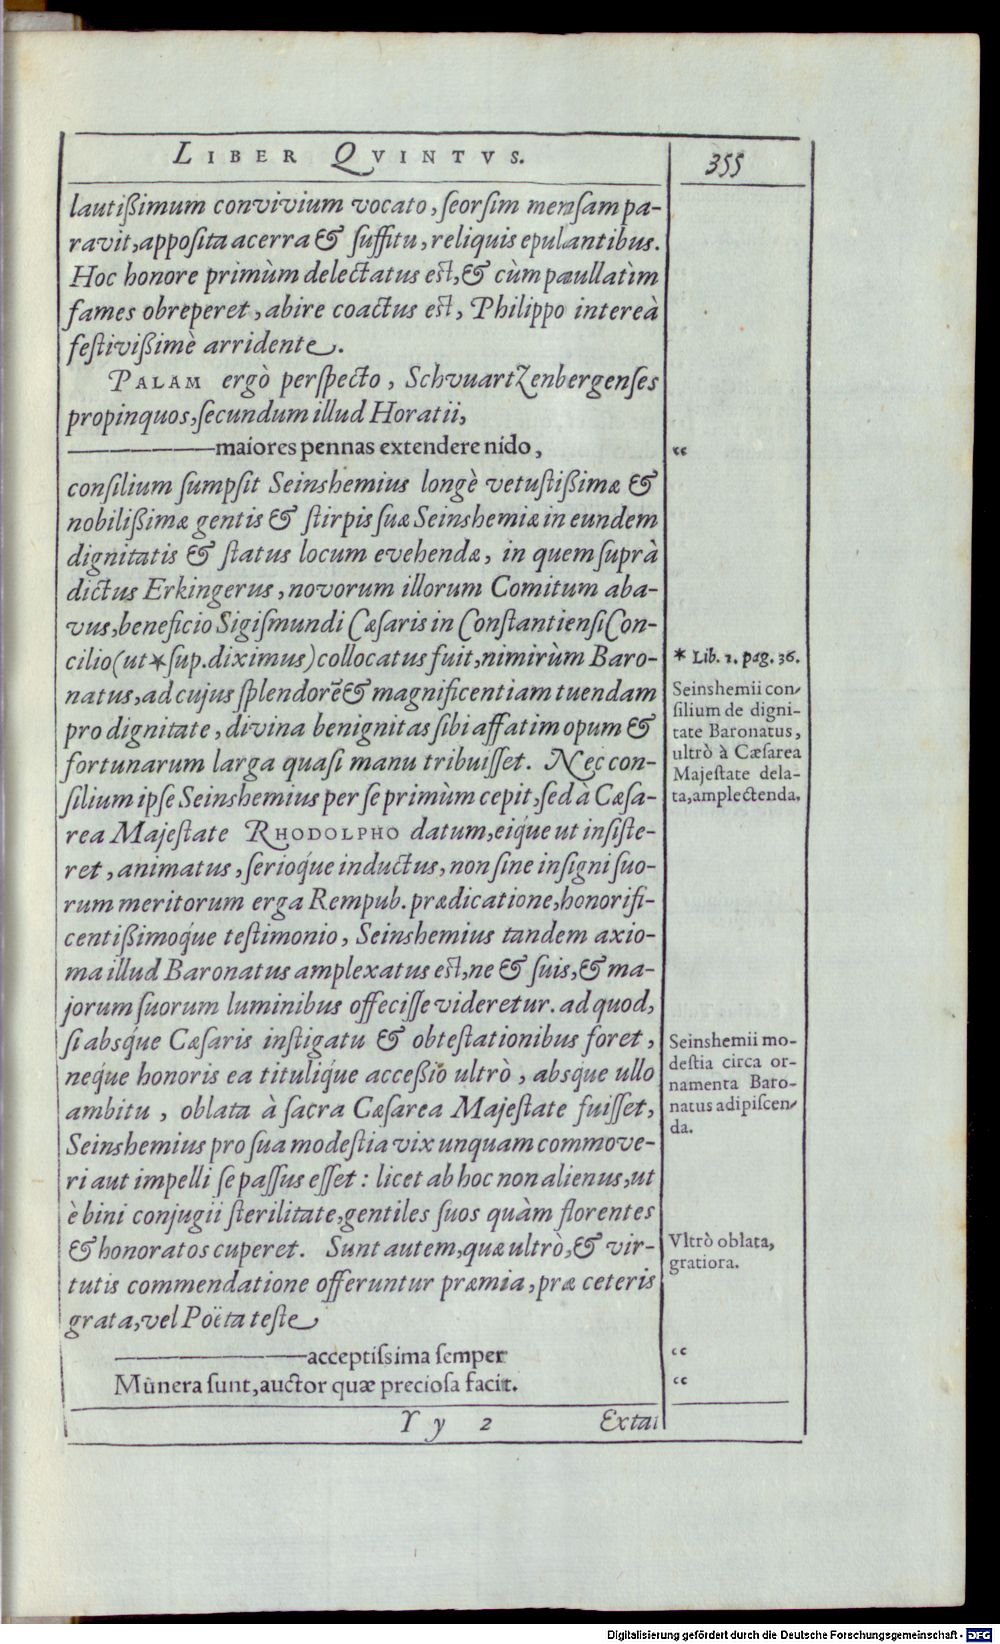 LIBER QVINTVS.
355
lautißimum convivium vocato, ſeorſim menſam pa-
ravit, appoſita acerra & ſuffitu, reliquis epulantibus.
Hoc honore primùm delectatus eſt, & cùm paullatìm
fames obreperet, abire coactus eſt, Philippo intereà
feſtivißimè arridente.
PALAM ergò perſpecto, Schvuartzenbergenſes
propinquos, ſecundum illud Horatii,
—maiores pennas extendere nido,
“
conſilium ſumpſit Seinshemius longè vetuſtißimæ &
nobilißimæ gentis & ſtirpis ſuæ Seinshemiæ in eundem
dignitatis & ſtatus locum evehendæ, in quem ſuprà
dictus Erkingerus, novorum illorum Comitum aba-
vus, beneficio Sigiſmundi Cæſaris in Conſtantienſi Con-
cilio (ut * ſup. diximus) collocatus fuit, nimirùm Baro-
natus, ad cujus ſplendorẽ & magnificentiam tuendam
pro dignitate, divina benignitas ſibi affatim opum &
fortunarum larga quaſi manu tribuiſſet. Nec con-
ſilium ipſe Seinshemius per ſe primùm cepit, ſed à Cæſa-
rea Majeſtate RHODOLPHO datum, eiq́ue ut inſiſte-
ret, animatus, ſerioq́ue inductus, non ſine inſigni ſuo-
rum meritorum erga Rempub. prædicatione, honorifi-
centißimoq́ue teſtimonio, Seinshemius tandem axio-
ma illud Baronatus amplexatus eſt, ne & ſuis, & ma-
jorum ſuorum luminibus offeciſſe videretur. ad quod,
ſi absq́ue Cæſaris inſtigatu & obteſtationibus foret,
neq́ue honoris ea tituliq́ue acceßio ultrò, absq́ue ullo
ambitu, oblata à ſacra Cæſarea Majeſtate fuiſſet,
Seinshemius pro ſua modeſtia vix unquam commove-
ri aut impelli ſe paſſus eſſet: licet ab hoc non alienus, ut
è bini conjugii ſterilitate, gentiles ſuos quàm florentes
& honoratos cuperet. Sunt autem, quæ ultrò, & vir-
tutis commendatione offeruntur præmia, præ ceteris
grata, vel Poëta teſte
—acceptiſsima ſemper
“
Mûnera ſunt, auctor quæ precioſa facit.
“
* Lib. 1. pag. 36.
Seinshemii con-
ſilium de digni-
tate Baronatus,
ultrò à Cæſarea
Majeſtate dela-
ta, amplectenda.
Seinshemii mo-
deſtia circa or-
namenta Baro-
natus adipiſcen-
da.
Vltrò oblata,
gratiora.
Yy 2
Extat
Digitalisierung gefördert durch die Deutsche Forschungsgemeinschaft - DFG